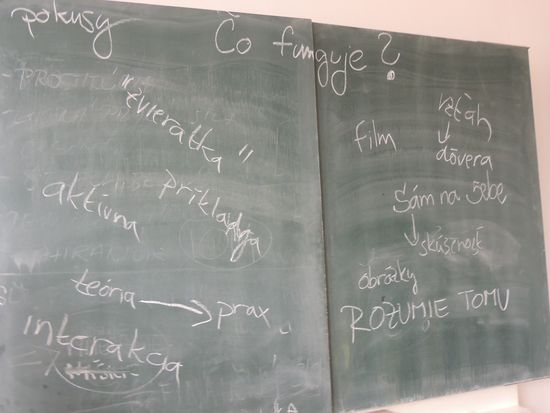 pokusy
Čo funguje?
"zvieratká"
aktívna
príklady
teória → prax
interakcia
film
vzťah
↓
dôvera
Sám na sebe
↓ skúsenosť
obrázky
ROZUMIE TOMU